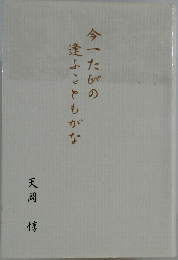 今一たびの
逢ふこともがな
天岡 惇